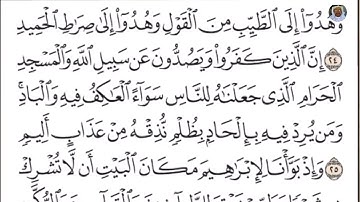 وَهُدُوٓا۟ إِلَى ٱلطَّيِّبِ مِنَ ٱلْقَوْلِ وَهُدُوٓا۟ إِلَىٰ صِرَٰطِ ٱلْحَمِيدِ
٢٤ إِنَّ ٱلَّذِينَ كَفَرُوا۟ وَيَصُدُّونَ عَن سَبِيلِ ٱللَّهِ وَٱلْمَسْجِدِ
ٱلْحَرَامِ ٱلَّذِى جَعَلْنَٰهُ لِلنَّاسِ سَوَآءً ٱلْعَٰكِفُ فِيهِ وَٱلْبَادِ
وَمَن يُرِدْ فِيهِ بِإِلْحَادٍۭ بِظُلْمٍ نُّذِقْهُ مِنْ عَذَابٍ أَلِيمٍ
٢٥ وَإِذْ بَوَّأْنَا لِإِبْرَٰهِيمَ مَكَانَ ٱلْبَيْتِ أَن لَّا تُشْرِكْ